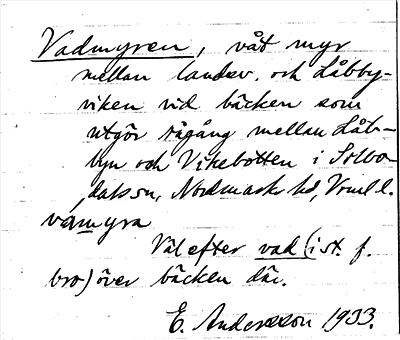 Vadmyren, våt myr
mellan landsv. och Låbby-
viken vid bäcken som
utgör rågång mellan Låb-
byn och Vikebotten i Silbo-
dals sn, Nordmarks hd, Vrml l.
vamyra
Väl efter vad (i st. f.
bro) över bäcken där.
E. Andersson 1933.